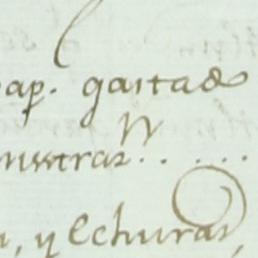 ap. gastad
nistrar. . . . . .
, y Echuras,